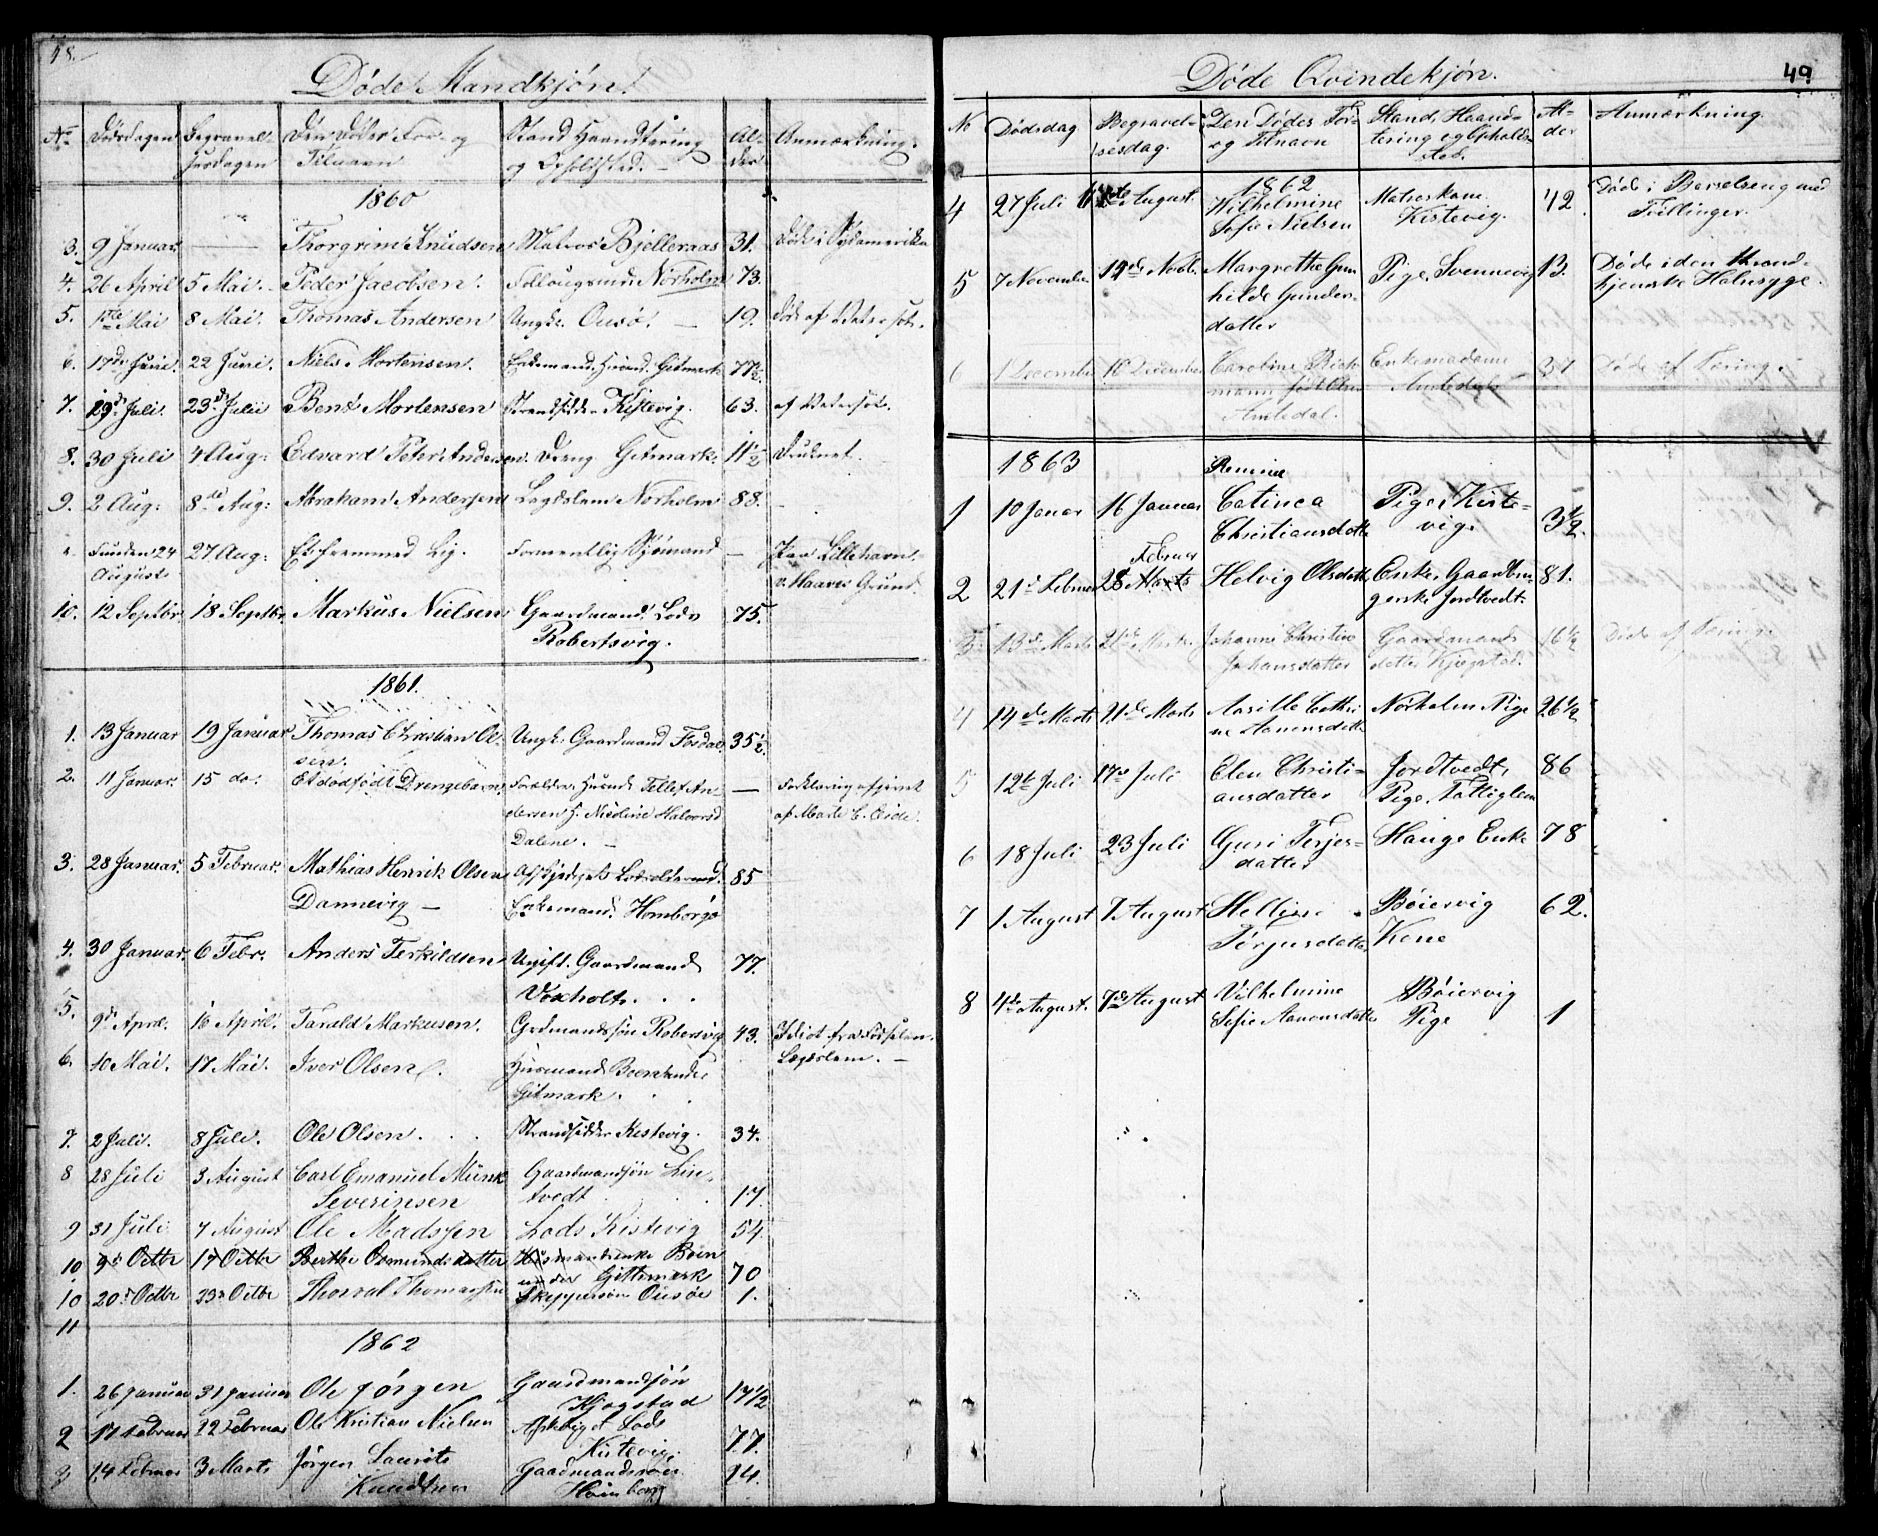 48.
Døde Mandkjøn.
No Dødsdagen Begravelsesdagen Den Dødes For- og Tilnavn Stand Haandtering og Opholdsted. Alder Anmærkning.
1860
3. 9 Januar. Thorgrim Knudsen Matros Bjelleraas 31. Døde i Sydamerika
4. 26 April 5 Mai. Peder Jacobsen. Norholm 73.
5. 1ste Mai 8 Mai. Thomas Andersen Ungk. Ousö. 19. Døde af Vatersot.
6. 17de Juni. 22 Juni. Niels Mortensen. Gitmark 77½.
7. 19d. Juli. 23d Julii Bent Mortensen Strandsidder Kistevig. 63. af Vatersot.
8. 30 Juli 4 Aug: Edvard Peter Andersen. Dreng Gitmark. 11½ Druknet.
9. 2 Aug: 8de Aug: Abraham Andersen Lægdslem Norholm 88.
Funden 24 August 27 Aug: Et fremmed Lig. Formentlig Sjømand — Paa Lillehavn v. Haaves Grund.
10. 12 Septbr. 18 Septbr. Markus Nielsen Gaardmand. Lods Robertsvig. 75.
1861.
1. 13 Januar 19 Januar Thomas Christian Olsen. Ungk. Gaardmand Fosdal 35½.
2. 11 Januar. 15 do. Et dødfødt Drengebarn Forældre: Husmd Tellef Andersen o. Nicoline Halvorsd Dalene. — Forklaring afgivet af Marte C. Eide.
3. 28 Januar. 5 Februar. Mathias Henrik Olsen Dannevig — Afskjediget Lodsoldermd. Enkemand. Homborgø 85
4. 30 Januar. 6 Febr. Anders Terkildsen Ugift. Gaardmand Voxholt. 77.
5. 9d April. 16 April. Tarald Markusen. Grdmandssøn Robersvig 43. Idiot fra Fødselen. Lægdslem. —
6. 10 Mai. 17 Mai. Iver Olsen. Husmand Boen under Gitmark.
7. 2 Juli. 8 Juli. Ole Olsen. Strandsidder Kistevig. 34.
8 28 Juli 3 August Carl Emanuel Munk Severinsen Gaardmandsøn Lintvedt 17.
9 31 Juli 7 August Ole Madssen Lods Kistevig 54
10 9de Octbr 17 Octbr Berthe Osmundsdatter Husmandsenke Boen under Gittmark 70
10 20d Octbr 23d Octbr Thorval Thomassen Skippersøn Ousöe 1.
11
1862
1. 26 Januar 31 Januar Ole Jörgen Gaardmandsøn Hjøgstad 17½
2 17 Februar 22 Februar Ole Kristian Nielsen Afskediget Lods Kistevig. 77.
3 14 Februar 3 Marts Jørgen Laurits Knudtsen Gaadmandssøn Homborg 24.
49
Døde Qvindekjøn.
No Dødsdag Begravelsesdag. Den Dødes For- og Tilnavn Stand, Haandtering og Opholdssted. Alder Anmærkning.
1862
4 27 Juli August. Wilhelmine Sofie Nielsen Matroskone. Kistevig. 42 Døde i Barselseng med Tvillinger.
5 7 November 19de Novb. Margrethe Gunhilde Gundersdatter Pige. Svennevig 13. Døde i den Throndhjemske Halssyge.
6 1 December 10 December Caroline Richmann født Amledal. Enkemadame 37 Døde af Tæring.
1863
1 10 Januar 16 Januar Remine Catinca Christiansdatter Pige. Kistevig. 3½.
2 21d Februar 28 Marts Februar Helvig Olsdatter Enke, Gaardbrugerske Jordtvedt. 81.
3 13de Marts 21de Marts. Johanne Christine Johansdatter Gaardmands datter Kjøgstad. 16½ Døde af Tæring.
4 14de Marts 21de Marts Aasille Cathrine Aanonsdatter Norholm Pige 26½
5 12te Juli 17de Juli Elen Christiansdatter Jordtvedt, Pige, Fattiglem 86
6 18 Juli 23 Juli Guri Terjesdatter Hauge Enke 78
7 1 August 7 August Helline Torjusdatter Bøiervig Kone 62.
8 4de August. 7de August Vilhelmine Sofie Aanonsdatter Bøiervig Pige 1